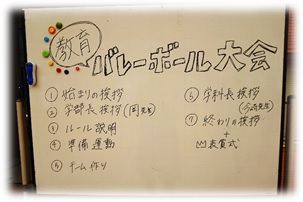 教育
バレーボール大会
① 始まりの挨拶
② 学部長挨拶(岡先生)
③ ルール説明
④ 準備運動
⑤ チーム作り
⑥ 学科長挨拶
⑦ 終わりの挨拶
+
表賞式